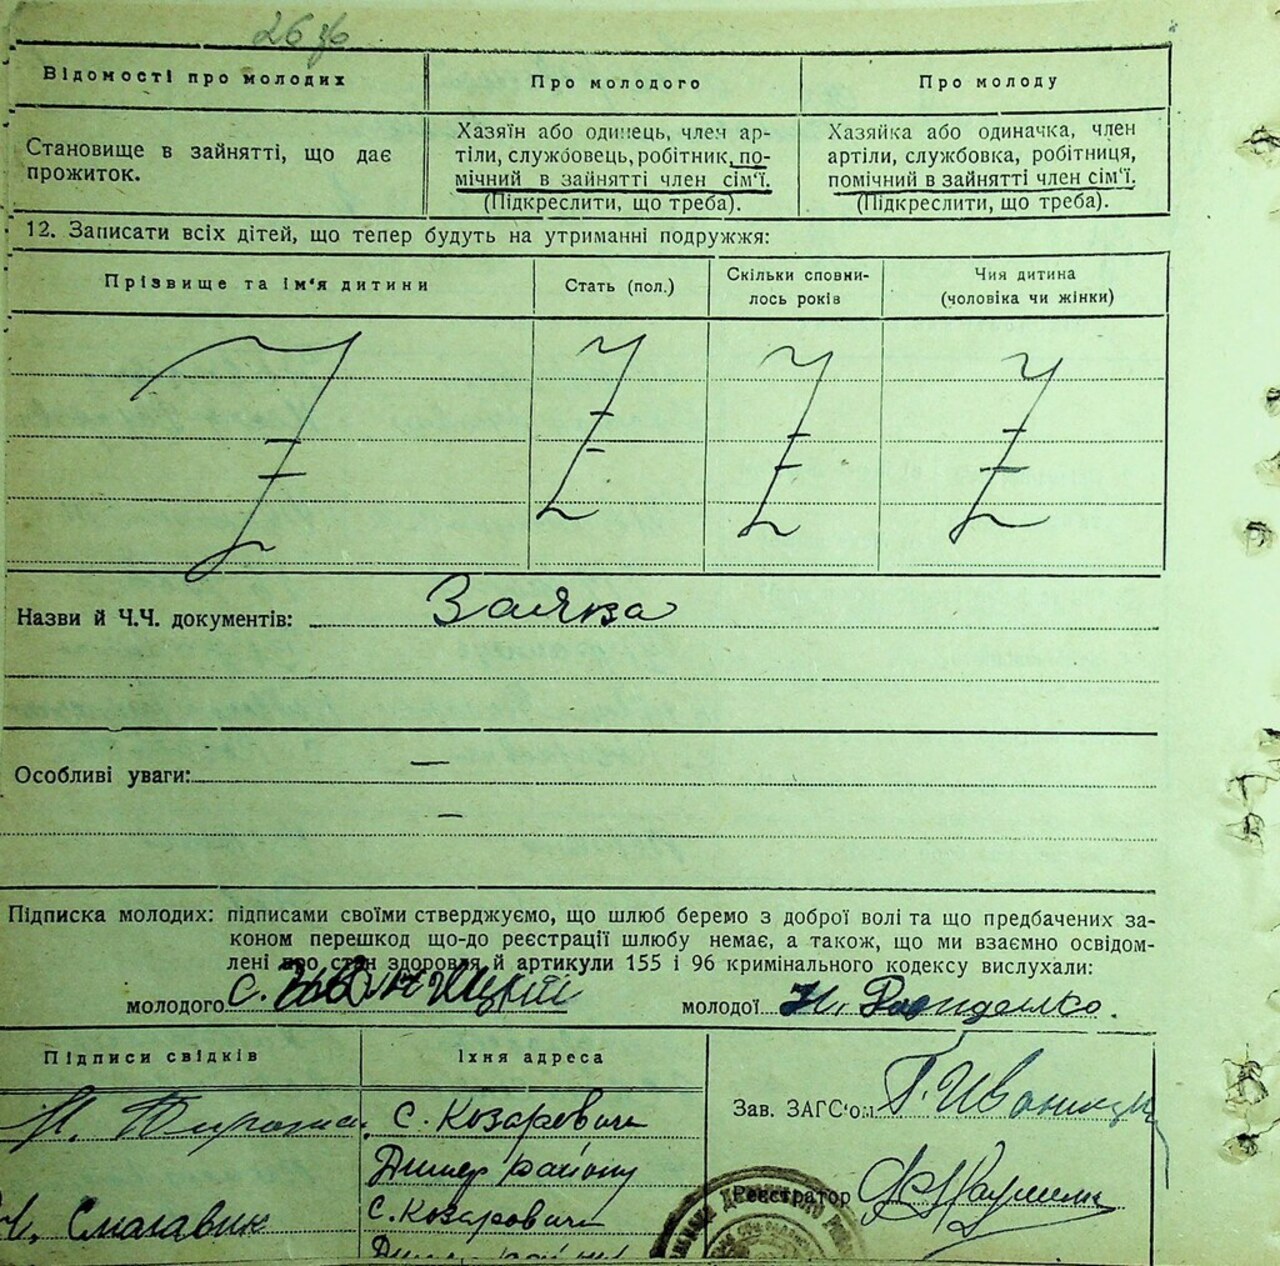 26 зв
Відомості про молодих
Про молодого
Про молоду
Становище в зайнятті, що дає
прожиток.
Хазяїн або одинець, член ар-
тіли, службовець, робітник, по-
мічний в зайнятті член сім'ї.
(Підкреслити, що треба).
Хазяйка або одиначка, член
артіли, службовка, робітниця,
помічний в зайнятті член сім'ї.
(Підкреслити, що треба).
12. Записати всіх дітей, що тепер будуть на утриманні подружжя:
Прізвище та ім'я дитини
Стать (пол.)
Скільки сповни-
лось років
Чия дитина
(чоловіка чи жінки)
Назви й Ч.Ч. документів: Заявка
Особливі уваги: —
—
Підписка молодих: підписами своїми стверджуємо, що шлюб беремо з доброї волі та що предбачених за-
коном перешкод що-до реєстрації шлюбу немає, а також, що ми взаємно освідом-
лені про стан здоровля й артикули 155 і 96 кримінального кодексу вислухали:
молодого С.
молодої Н.
Підписи свідків
Їхня адреса
с. Козаровичи
Димер району
с. Козаровичи
Димер
Зав. ЗАГС'ом
Реєстратор